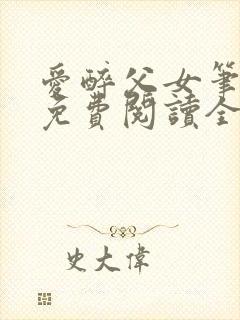 愛醉父女筆
免費閱讀全
史大偉